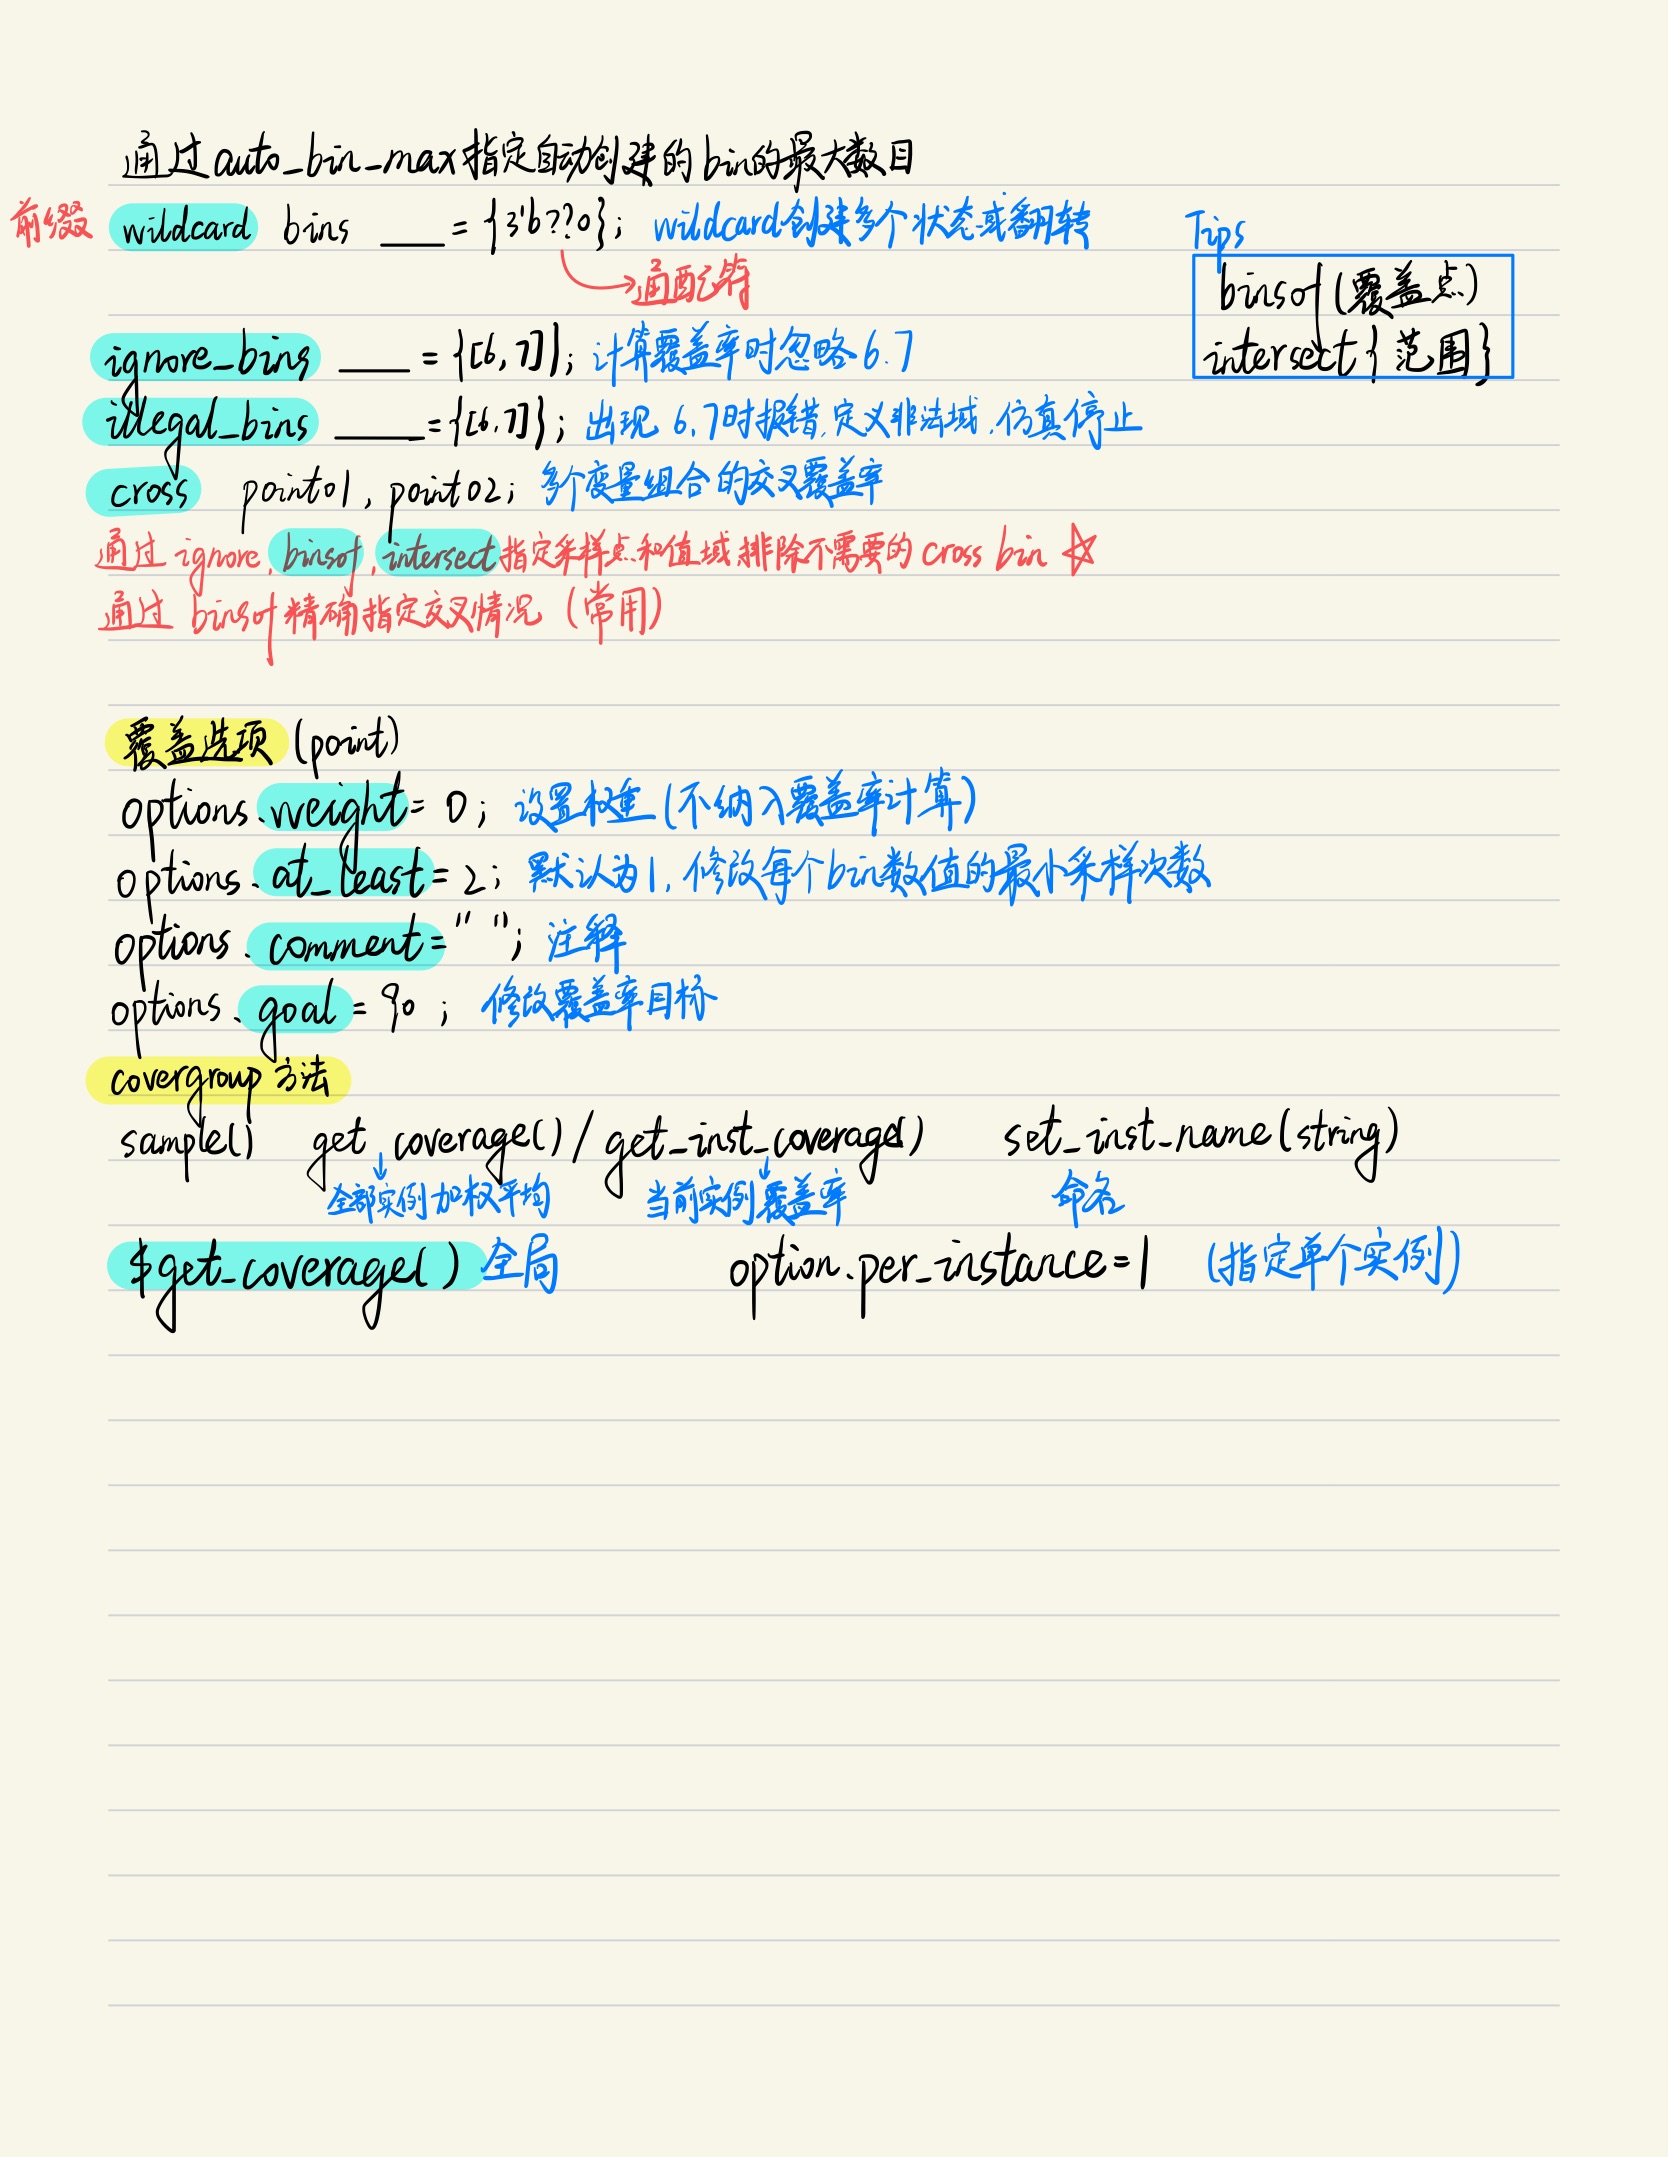 通过auto_bin_max指定自动创建的bin的最大数目
前缀 wildcard bins ____ = {3'b??0}; wildcard创建多个状态或翻转
通配符
Tips
binsof(覆盖点)
intersect{范围}
ignore_bins ____ = {[6,7]}; 计算覆盖率时忽略6.7
illegal_bins ____ = {[6,7]}; 出现 6.7时报错,定义非法域,仿真停止
cross point01, point02; 多个变量组合的交叉覆盖率
通过 ignore, binsof, intersect指定采样点和值域,排除不需要的 cross bin ☆
通过 binsof精确指定交叉情况 (常用)
覆盖选项 (point)
options.weight = 0; 设置权重(不纳入覆盖率计算)
options.at_least = 2; 默认为1, 修改每个bin数值的最小采样次数
options.comment = " "; 注释
options.goal = 90; 修改覆盖率目标
covergroup 方法
sample() get coverage() / get_inst_coverage() set_inst_name(string)
↓全部实例加权平均 ↓当前实例覆盖率 命名
$get_coverage() 全局 option.per_instance=1 (指定单个实例)